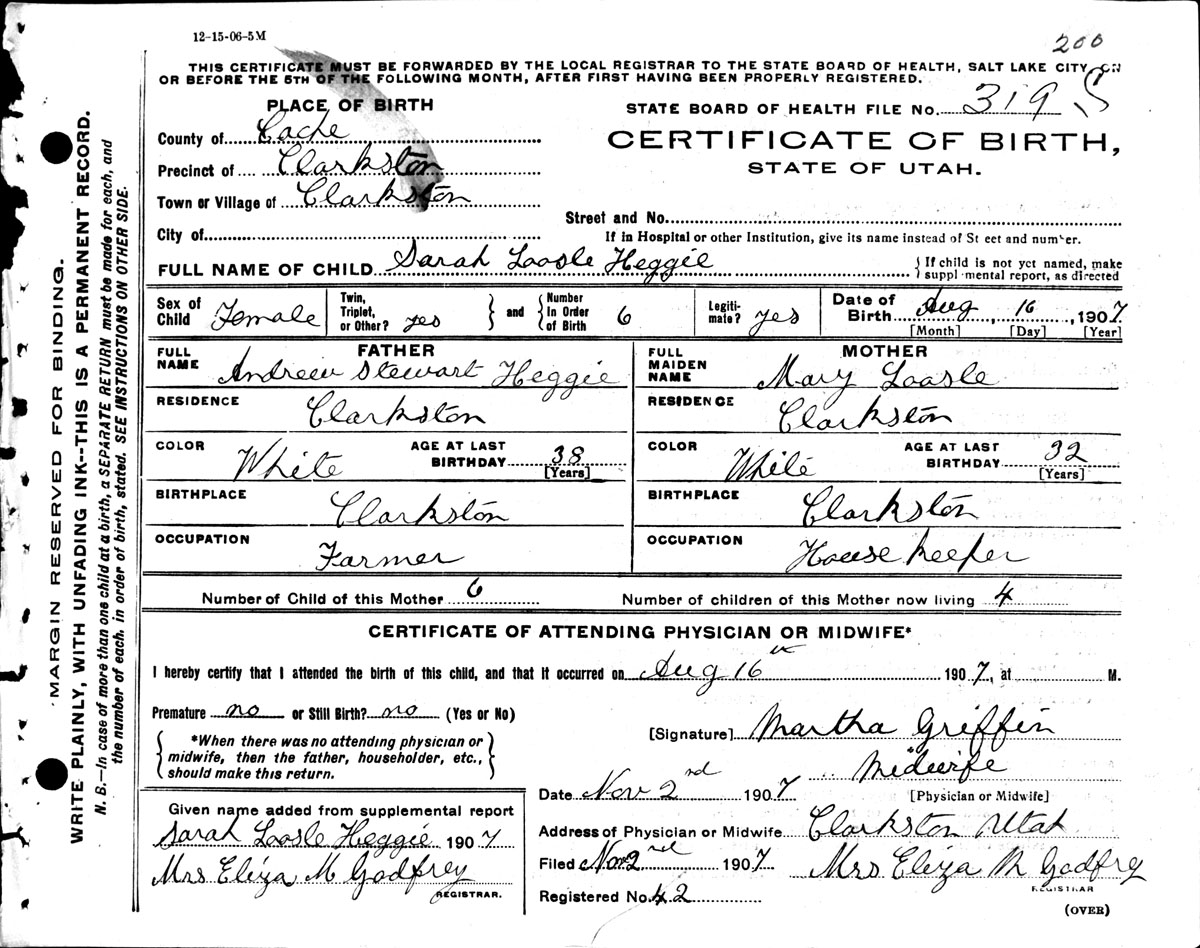 12-15-06-5M
200
THIS CERTIFICATE MUST BE FORWARDED BY THE LOCAL REGISTRAR TO THE STATE BOARD OF HEALTH, SALT LAKE CITY, ON
OR BEFORE THE 5TH OF THE FOLLOWING MONTH, AFTER FIRST HAVING BEEN PROPERLY REGISTERED.
PLACE OF BIRTH
STATE BOARD OF HEALTH FILE No. 319 S
County of Cache
CERTIFICATE OF BIRTH,
STATE OF UTAH.
Precinct of Clarkston
Town or Village of Clarkston
Street and No.
City of
If in Hospital or other Institution, give its name instead of St eet and number.
FULL NAME OF CHILD Sarah Loosle Heggie
{ If child is not yet named, make
suppl mental report, as directed
Sex of Child Female
Twin, Triplet, or Other? yes } and { Number In Order of Birth 6
Legiti-mate? yes
Date of Birth Aug, 16, 1907
[Month] [Day] [Year]
FATHER
FULL NAME Andrew Stewart Heggie
RESIDENCE Clarkston
COLOR White AGE AT LAST BIRTHDAY 38
[Years]
BIRTHPLACE Clarkston
OCCUPATION Farmer
MOTHER
FULL MAIDEN NAME Mary Loosle
RESIDENCE Clarkston
COLOR White AGE AT LAST BIRTHDAY 32
[Years]
BIRTHPLACE Clarkston
OCCUPATION House keeper
Number of Child of this Mother 6 Number of children of this Mother now living 4
CERTIFICATE OF ATTENDING PHYSICIAN OR MIDWIFE*
I hereby certify that I attended the birth of this child, and that it occurred on Aug 16 1907, at M.
Premature no or Still Birth? no (Yes or No)
{ *When there was no attending physician or
midwife, then the father, householder, etc.,
should make this return. }
[Signature] Martha Griffin
Midwife
[Physician or Midwife]
Date Nov 2nd 1907
Address of Physician or Midwife Clarkston Utah
Filed Nov 2nd 1907 Mrs Eliza M Godfrey
REGISTRAR
Registered No. 42
(OVER)
Given name added from supplemental report
Sarah Loosle Heggie 1907
Mrs Eliza M Godfrey
REGISTRAR.
MARGIN RESERVED FOR BINDING.
WRITE PLAINLY, WITH UNFADING INK--THIS IS A PERMANENT RECORD.
N. B.—In case of more than one child at a birth, a SEPARATE RETURN must be made for each, and
the number of each, in order of birth, stated. SEE INSTRUCTIONS ON OTHER SIDE.